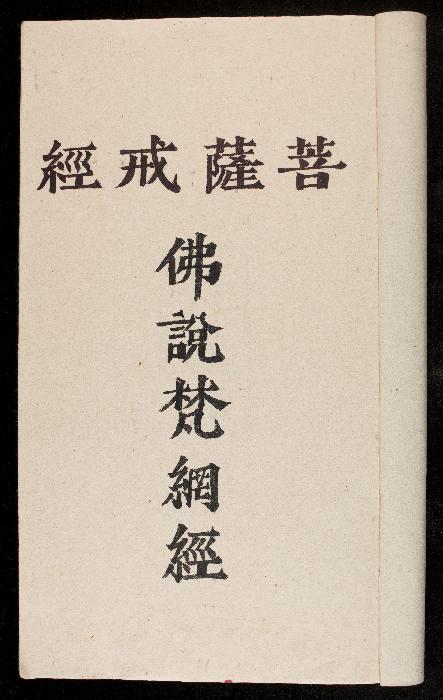 菩薩戒經
佛說梵網經